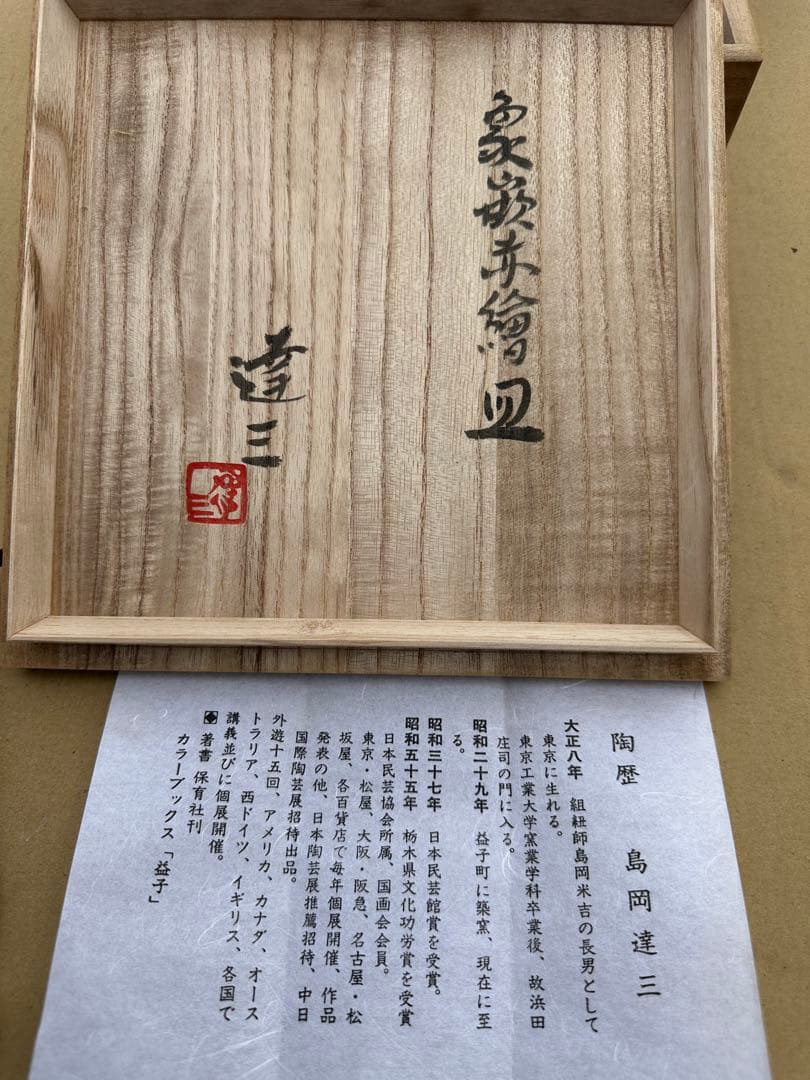 象嵌赤繪皿
達三
陶歴　島岡達三
大正八年　組紐師島岡米吉の長男として
東京に生れる。
東京工業大学窯業学科卒業後、故浜田
庄司の門に入る。
昭和二十九年　益子町に築窯、現在に至
る。
昭和三十七年　日本民芸館賞を受賞。
昭和五十五年　栃木県文化功労賞を受賞
日本民芸協会所属、国画会会員。
東京・松屋、大阪・阪急、名古屋・松
坂屋、各百貨店で毎年個展開催、作品
発表の他、日本陶芸展推薦招待、中日
国際陶芸展招待出品。
外遊十五回、アメリカ、カナダ、オース
トラリア、西ドイツ、イギリス、各国で
講義並びに個展開催。
著書 保育社刊
カラーブックス「益子」